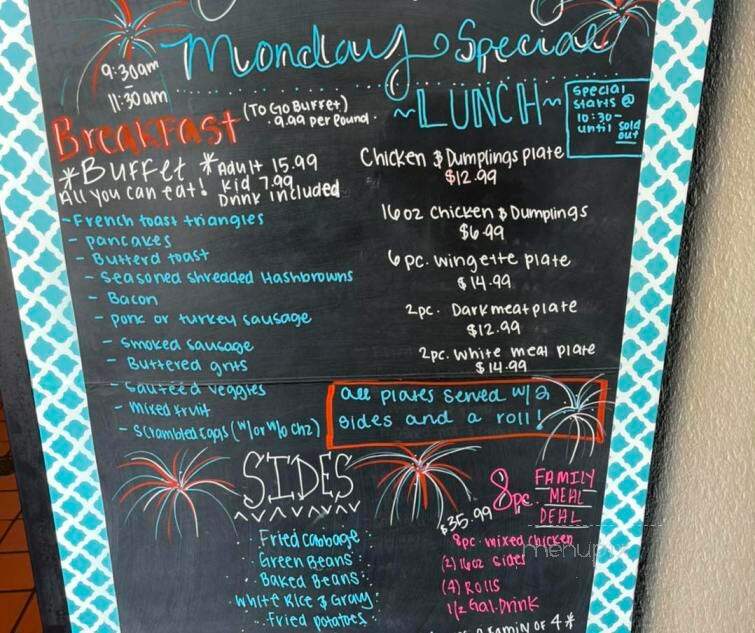 Monday Special
9:30am
-
11:30am
BreakFast
(To Go Buffet)
9.99 per Pound.
*Buffet *Adult 15.99
All you can eat! Kid 7.99
Drink included
- French toast triangles
- pancakes
- Butterd toast
- Seasoned shredded Hashbrowns
- Bacon
- pork or turkey sausage
- Smoked sausage
- Buttered grits
- Sauteed veggies
- mixed fruit
- Scrambled Eggs (w/ or w/o chz)
~LUNCH~
Special
starts @
10:30-
until sold
out
Chicken & Dumplings plate
$12.99
16oz Chicken & Dumplings
$6.99
6pc. wingette plate
$14.99
2pc. Dark meat plate
$12.99
2pc. white meal plate
$14.99
all plates served w/ 2
sides and a roll!
SIDES
Fried Cabbage
Green Beans
Baked Beans
White Rice & Gravy
Fried potatoes
8pc. FAMILY
MEAL
DEAL
$35.99
8pc. mixed chicken
(2) 16oz sides
(4) Rolls
1/2 Gal. Drink
Family OF 4*